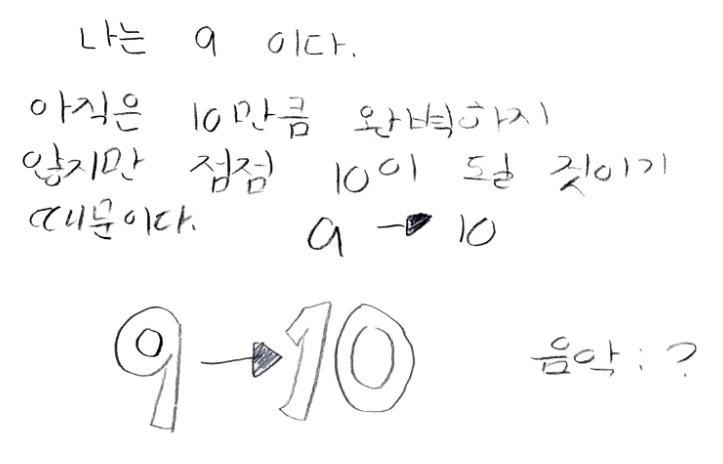 나는 9 이다.
아직은 10만큼 완벽하지
않지만 점점 10이 될 것이기
때문이다. 9 → 10
9 → 10
음악 : ?